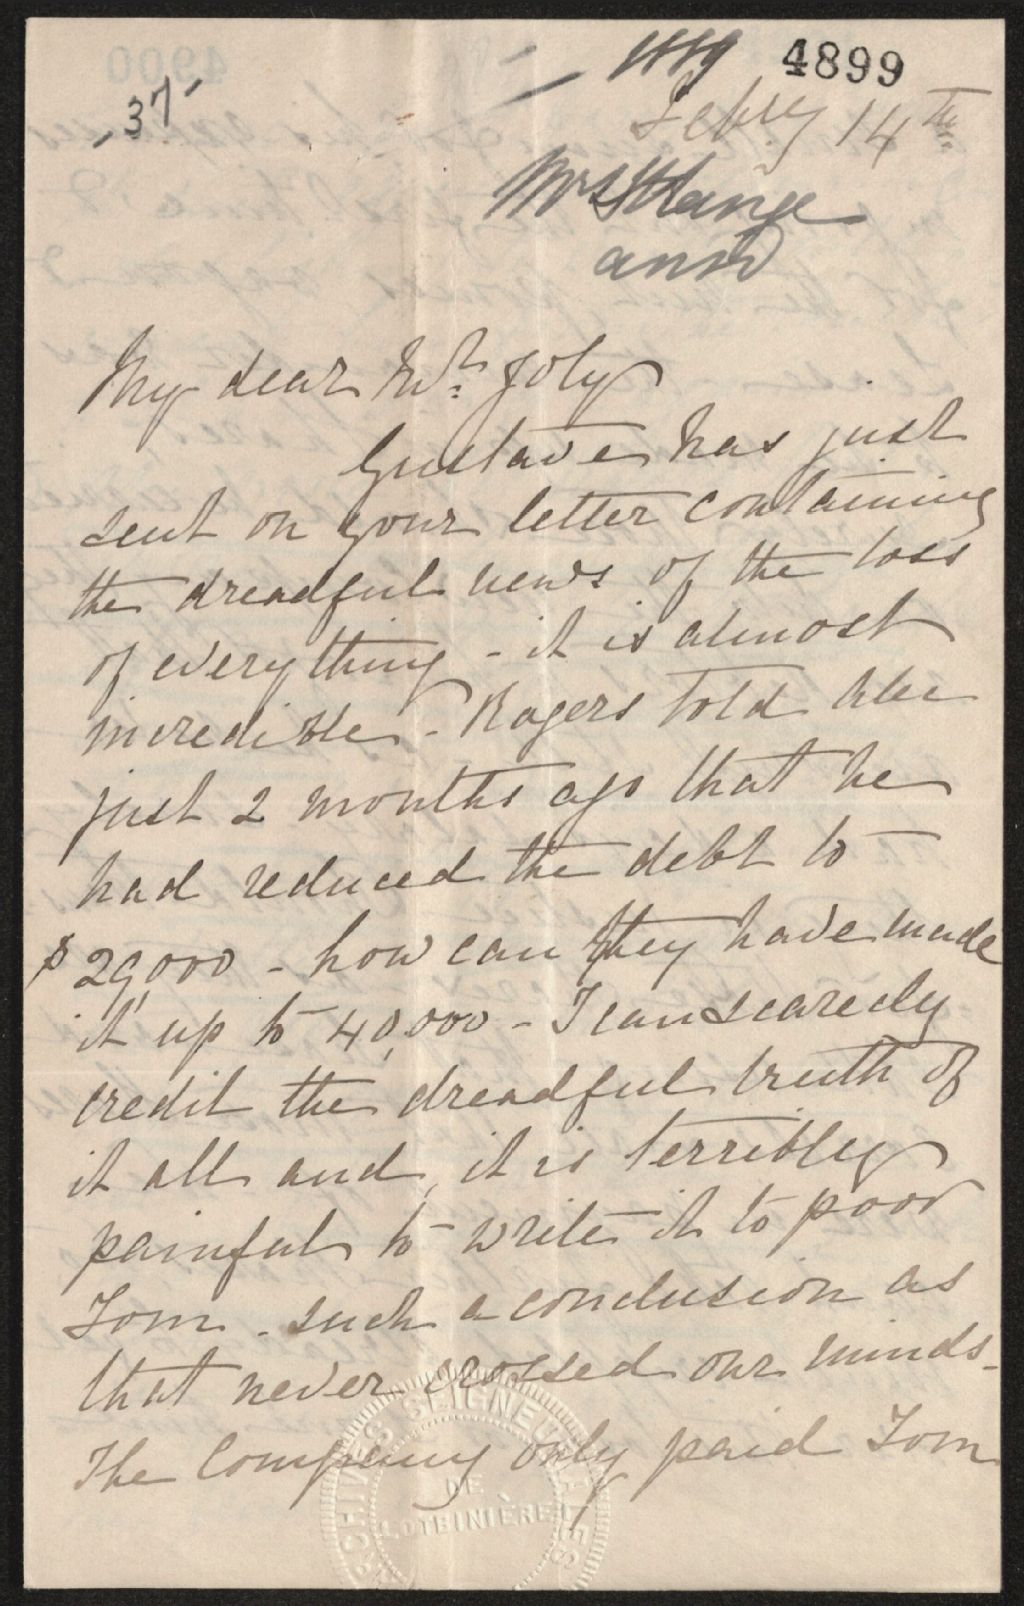 4899
- 37 -
1889
Febry 14th
Mrs Strange
ansd
My dear Mr. Joly
Gustave has just
sent on your letter containing
the dreadful news of the loss
of everything - it is almost
incredible - Rogers told me
just 2 months ago that he
had reduced the debt to
$29,000 - how can they have made
it up to 40,000 - I can scarcely
credit the dreadful truth of
it all and, it is terribly
painful to write it to poor
Tom - such a conclusion as
that never crossed our minds -
The Company only paid Tom
ARCHIVES SEIGNEURIALES
DE
LOTBINIÈRE